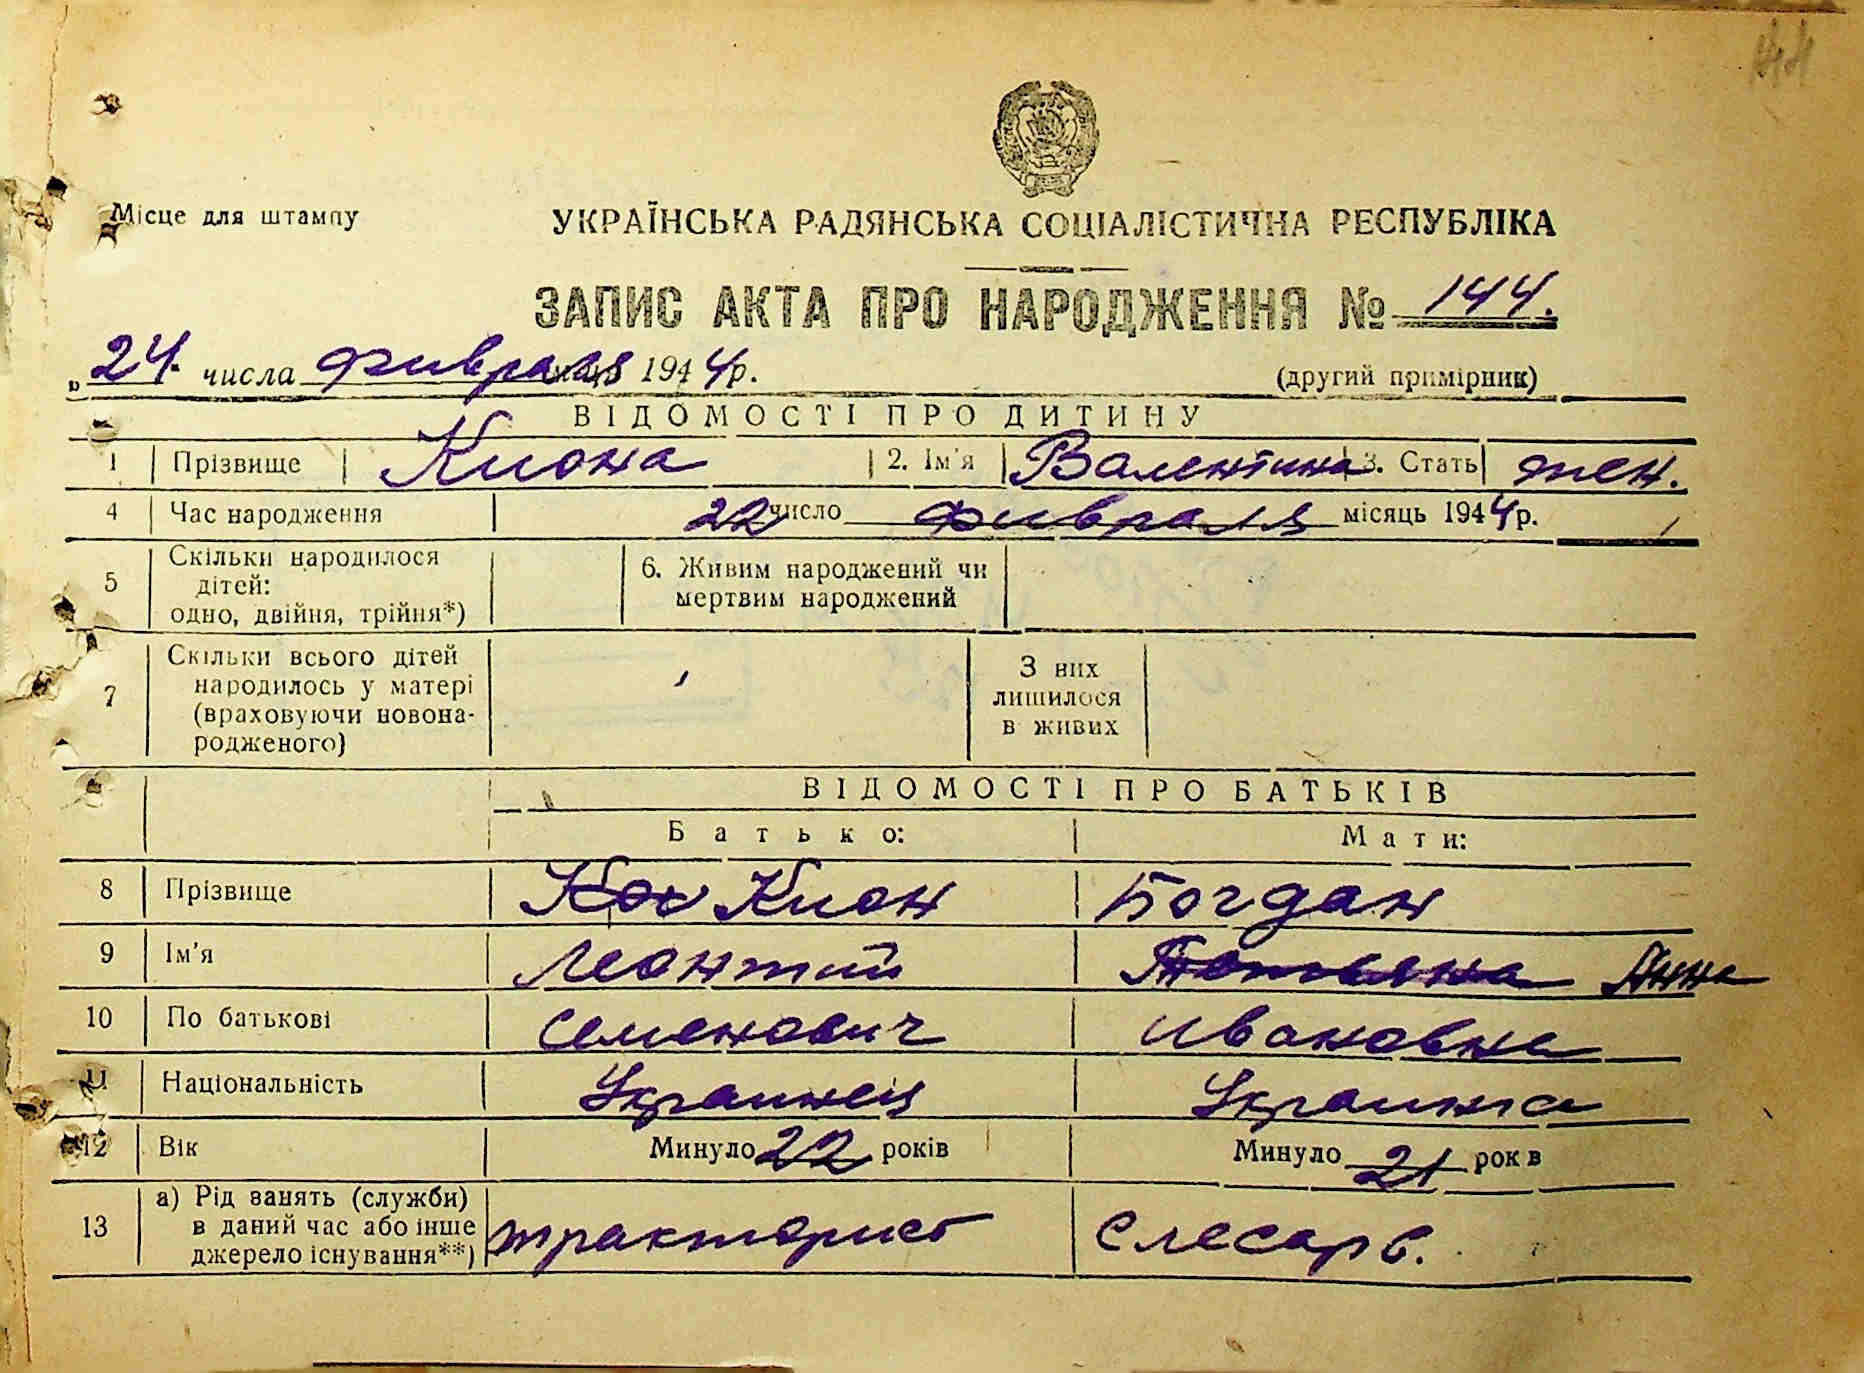 44
Місце для штампу
УКРАЇНСЬКА РАДЯНСЬКА СОЦІАЛІСТИЧНА РЕСПУБЛІКА
ЗАПИС АКТА ПРО НАРОДЖЕННЯ № 144.
„ 24 числа февраля 1944р.
(другий примірник)
ВІДОМОСТІ ПРО ДИТИНУ
1 Прізвище Киона 2. Ім'я Валентина 3. Стать жен.
4 Час народження 22 число февраля місяць 1944р.
5 Скільки народилося дітей: одно, двійня, трійня*) 6. Живим народжений чи мертвим народжений
7 Скільки всього дітей народилось у матері (враховуючи новонародженого) З них лишилося в живих
ВІДОМОСТІ ПРО БАТЬКІВ
Батько: Мати:
8 Прізвище Кион Богдан
9 Ім'я Леонтий Анна
10 По батькові Семенович Ивановна
11 Національність Украинец Украинка
12 Вік Минуло 22 років Минуло 21 рок в
13 а) Рід занять (служби) в даний час або інше джерело існування**) тракторист слесарь.